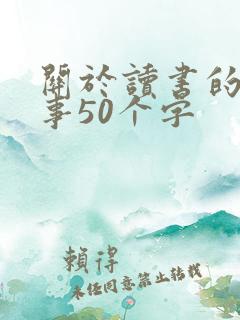 關於讀書的
事50个字
賴得
未经同意禁止转载